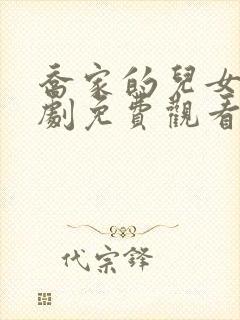 喬家的兒女
劇免費觀看
代宗鋒